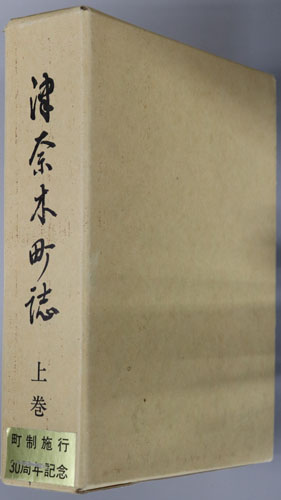 津奈木町誌
上巻
町制施行
30周年記念